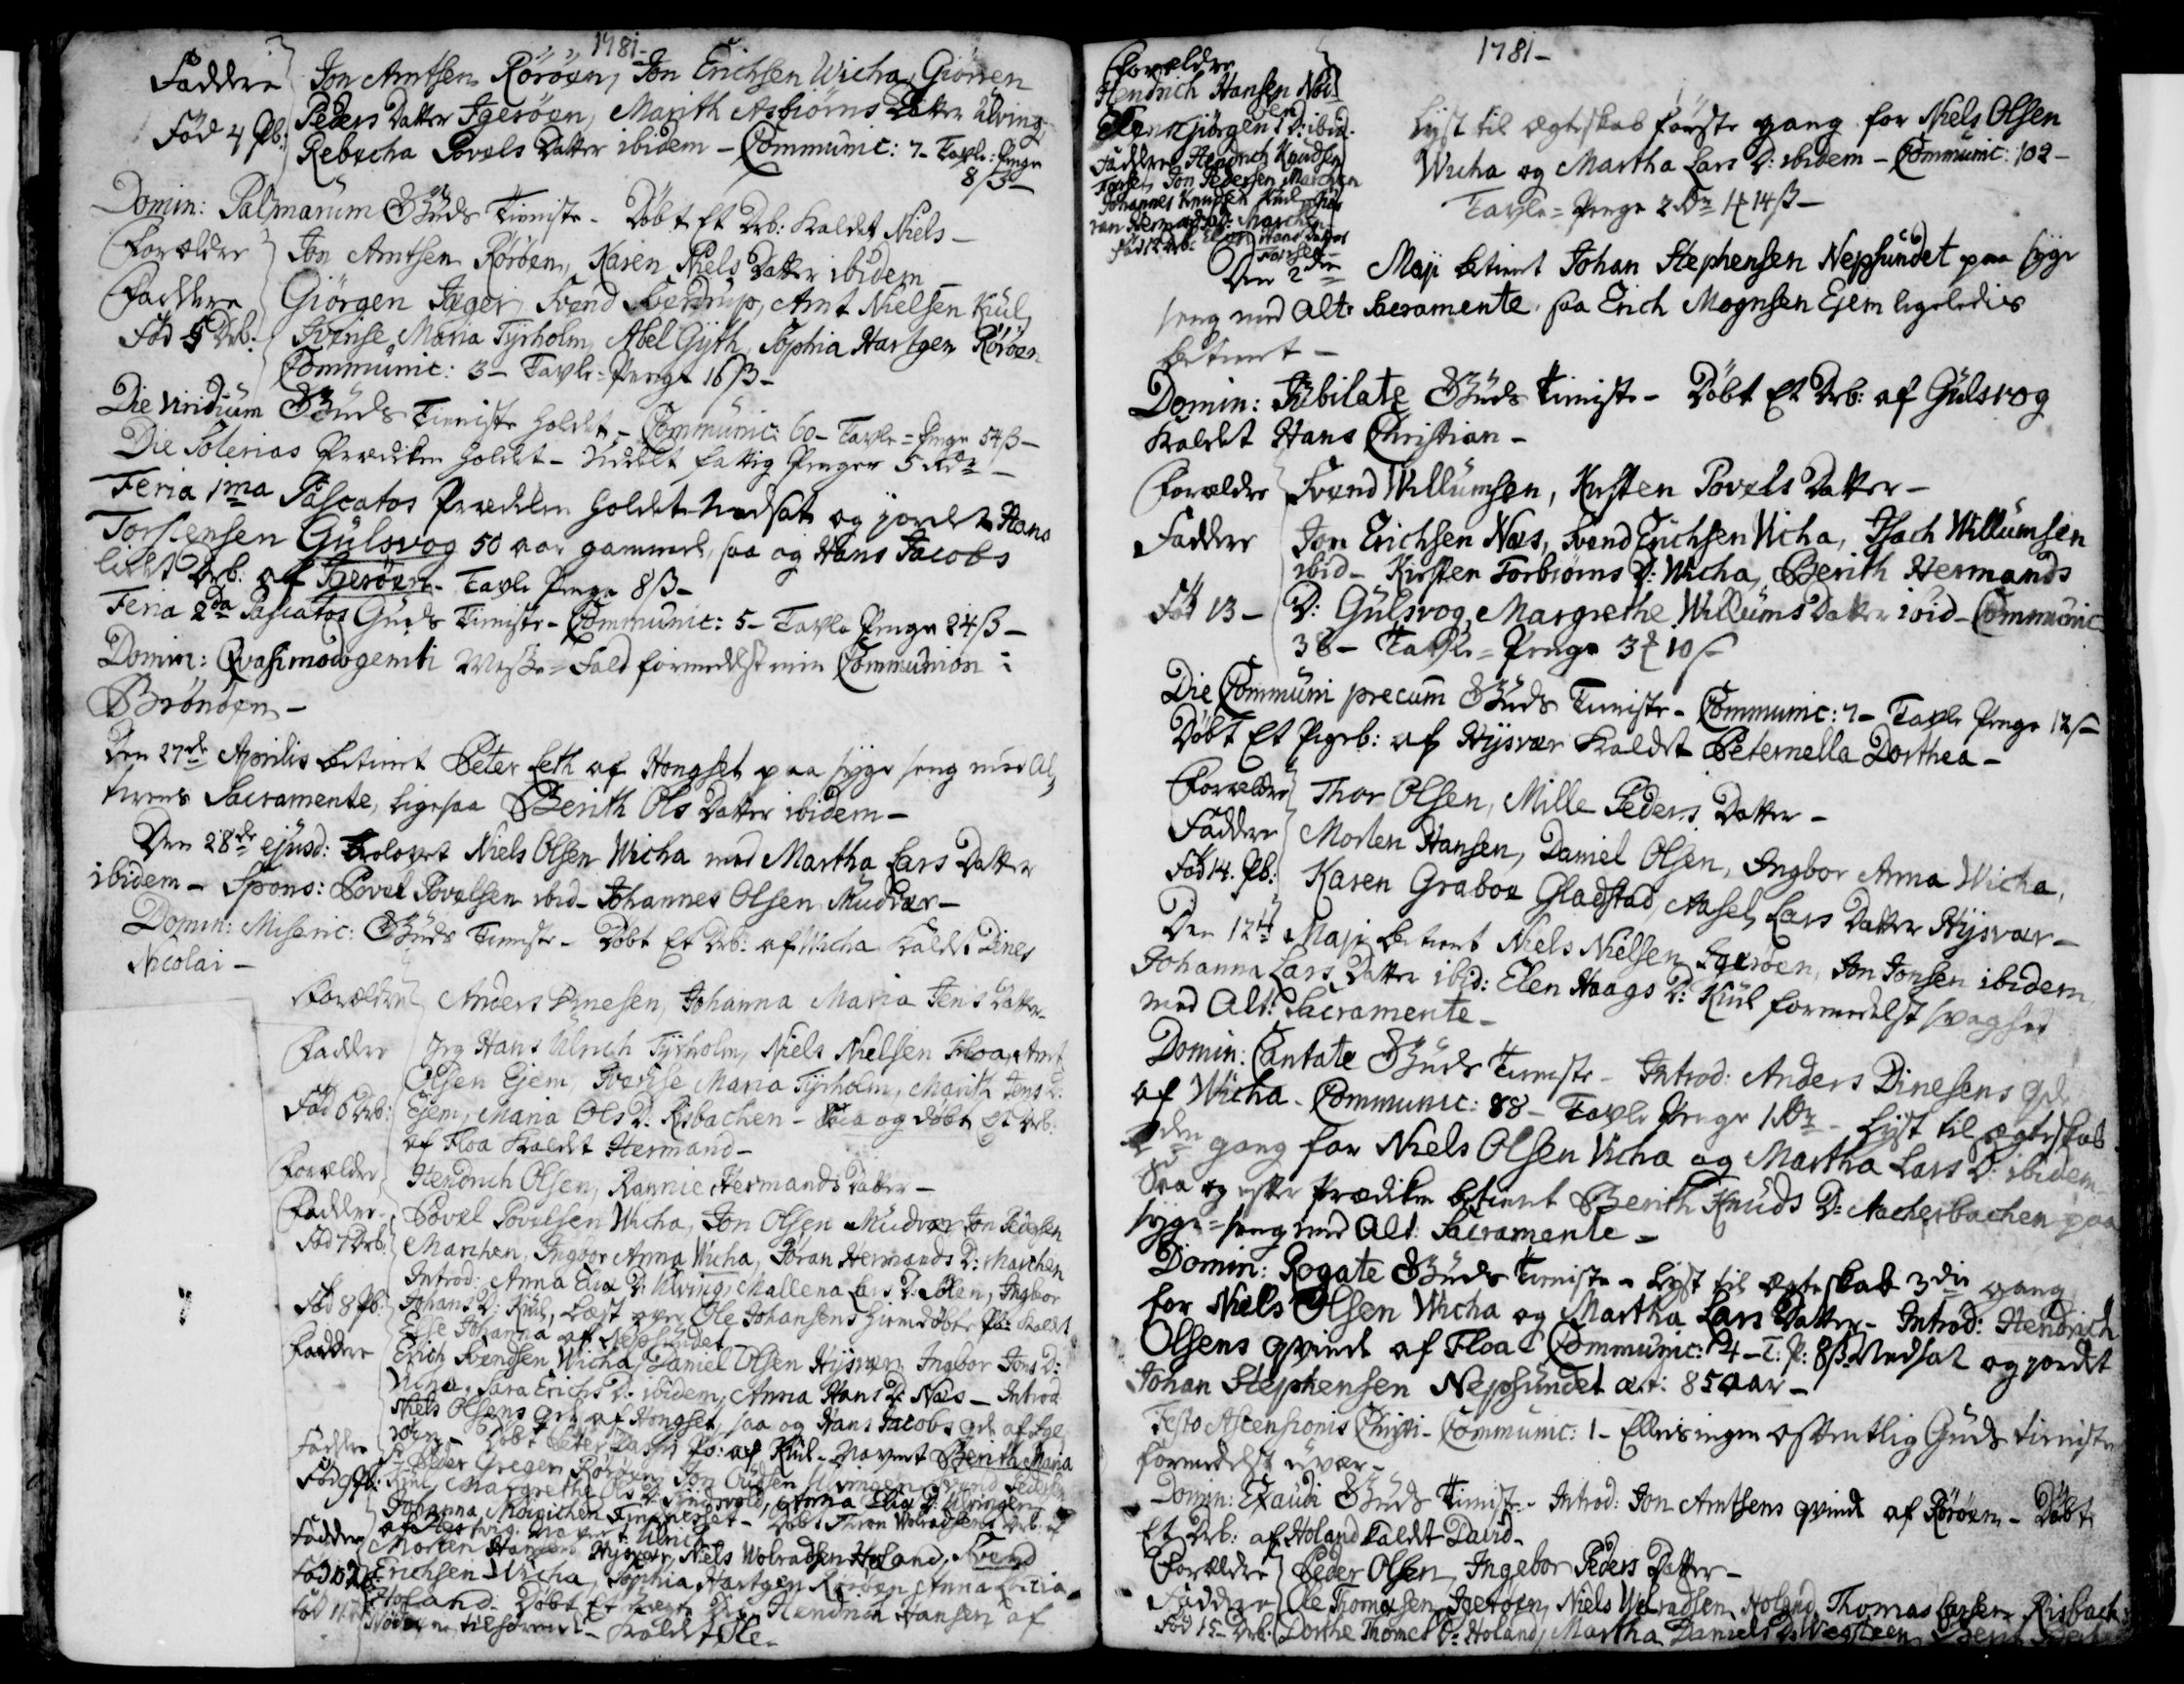 1781-
Faddere Jon Arntsen Röröen, Jon Erichsen Wicha, Giören
Peders Datter Igeröen, Marith Asbiörns Datter Ulving,
Fød 4 Pb: Rebecha Povels Datter ibidem - Communic: 7 - Tavle: Penge
8 ß -
Domin: Palmarum Guds Tieniste - Døbt Et Drb: Kaldet Niels -
Forældre Jon Arntsen Röröen, Karen Niels Datter ibidem -
Faddere Giörgen Jæger, Svend Sverdrup, Arnt Nielsen Kiül,
Fød 5 Drb: Maria Tyrholm, Abel Gyth, Sophia Hartgen Röröen
Communic: 3 - Tavle-Penge 16 ß -
Die Viridium Guds Tieniste holdet - Communic: 60 - Tavle-Penge 54 ß -
Die Solenias Prædiken holdet - Uddelt fattig Penger 5 Rdr -
Feria 1ma Pascatos Prædiken holdet Nedsat og jordet Hans
Torstensen Gülsvog 50 aar gammel, saa og Hans Jacobs
lidet Drb: af Igeröen - Tavle Penge 8 ß -
Feria 2da Pascatos Guds Tieniste - Communic: 5 - Tavle Penge 24 ß -
Domin: Qvasimodogeniti Messe-Fald formedelst min Communion i
Brönöen -
Den 27de Aprilis betient Peter Leth af Hongset paa syge seng med Al,
terens Sacramente, ligesaa Berith Ols Datter ibidem -
Den 28de ejusd: Trolovet Niels Olsen Wicha med Martha Lars Datter
ibidem - Spons: Povel Povelsen ibid - Johannes Olsen Mudvær -
Domin: Miseric: Guds Tieniste - Døbt Et Drb: af Wicha Kaldt Dines
Nicolai -
Forældre Anders Dinesen, Johanna Maria Jens Datter -
Faddere Jeg Hans Ulrich Tyrholm, Niels Nielsen Floa, Arnt
Olsen Ejem, Maria Tyrholm, Marith Jens D:
Fød 6 Drb: Ejem, Maria Ols D. Risbachen - Saa og døbt Et Drb:
af Floa Kaldet Hermand -
Forældre Hendrich Olsen, Rannie Hermands Datter -
Faddere Povel Povelsen Wicha, Jon Olsen Mudvær Jon Pedersen
Fød 7 Drb: Marchen, Ingbor Anna Wicha, Söran Hermands D: Marchen
Introd: Anna D: Ulving, Mallena Lars D: Ingbor
Fød 8 Pb: Johans D: Kiül, Læst over Ole Johansens hiemdøbte Pb: Kaldet
Else Johanna af Nepsundet
Faddere Erich Svendsen Wicha, Daniel Olsen Hysvær, Ingbor Jons D:
Wicha, Sara Erichs D. ibidem, Anna Hans D. Næs - Introd
Niels Olsens qv: af Hongset, saa og Hans Jacobs qv: af Ige
röen - Døbt Peter Pb: af Kiül - navnet Berith Maria
Faddere Peder Greger Röröen, Jon
Fød 9 Pb: Kiül, Margrethe Ols D: Anna D: Ulvingen
Johanna - Døbt Wolradsens Drb: af
navnet Ulrich
Faddere Morten Hansen Hysvær, Niels Wolradsen Holand, Svend
Fød 10 Drb: Erichsen Wicha, Sophia Hartgen Röröen, Anna
Holand. Døbt Et Hendrich Hansen af
Fød 11 tilhörende - Kaldet Ole -
1781 -
Forældre
Hendrich Hansen
Giörgens D: ibid.
Faddere Hendrich Knudsen
Jon Pedersen Marchen
Johannes Knudsen Kiül
ran Hermands D: Marchen
Fød 12 Drb: Hans Datter
Lyst til ægteskab første gang for Niels Olsen
Wicha og Martha Lars D: ibidem - Communic: 102 -
Tavle-Penge 2 Rdr 14 ß -
Den 2den Maji betient Johan Stephensen Nepsundet paa syge
seng med Alt: Sacramente, saa Erich Mognsen Ejem ligeledes
betient -
Domin: Jubilate Guds Tieniste - Døbt Et Drb: af Gülsvog
Kaldet Hans Christian -
Forældre Svend Willumsen, Kirsten Povels Datter -
Faddere Jon Erichsen Næs, Svend Erichsen Wicha, Isach Willumsen
ibid - Kirsten Torbiörns D: Wicha, Berith Hermands
Fød 13 - D: Gülsvog, Margrethe Willums Datter ibid - Communic
38 - Tavle-Penge 3 10 ß
Die Communi precum Guds Tieniste - Communic: 7 - Tavle Penge 12 ß
Døbt Et Pigeb: af Hysvær Kaldet Peternella Dorthea -
Forældre Thor Olsen, Mille Peders Datter -
Faddere Morten Hansen, Daniel Olsen, Ingbor Anna Wicha,
Fød 14. Pb: Karen Graboe Gladstad, Aasel Lars Datter Hysvær -
Den 12te Maji betient Niels Nielsen Igeröen, Jon Jonsen ibidem,
Johanna Lars Datter ibid: Elen Haags D: Kiül formedelst svaghed
med Alt: Sacramente -
Domin: Cantate Guds Tieniste - Introd: Anders Dinesens qv:
af Wicha - Communic: 88 - Tavle Penge 1 Rdr - Lyst til ægteskab
2den gang for Niels Olsen Wicha og Martha Lars D: ibidem
Saa og efter Prædiken betient Berith Knuds D: Aacherbachen paa
syge-seng med Alt: Sacramente -
Domin: Rogate Guds Tieniste - Lyst til Ægteskab 3die gang
for Niels Olsen Wicha og Martha Lars Datter - Introd: Hendrich
Olsens qvinde af Floa - Communic: 14 - T: P: 8 ß Nedsat og jordet
Johan Stephensen Nepsundet æt: 85 aar -
Festo Ascensionis Christi - Communic: 1 - Ellers ingen offentlig Guds tieniste
formedelst uvær -
Domin: Exaudi Guds Tieniste - Introd: Jon Arntsens qvinde af Röröen - Døbt
Et Drb: af Holand kaldt David -
Forældre Peder Olsen, Ingebor Peders Datter -
Faddere Ole Thomasen Igeröen, Niels Wolradsen Holand, Thomas Larsen Risbach
Fød 15 - Drb: Dorthe Thomes D: Holand, Martha Daniels D: